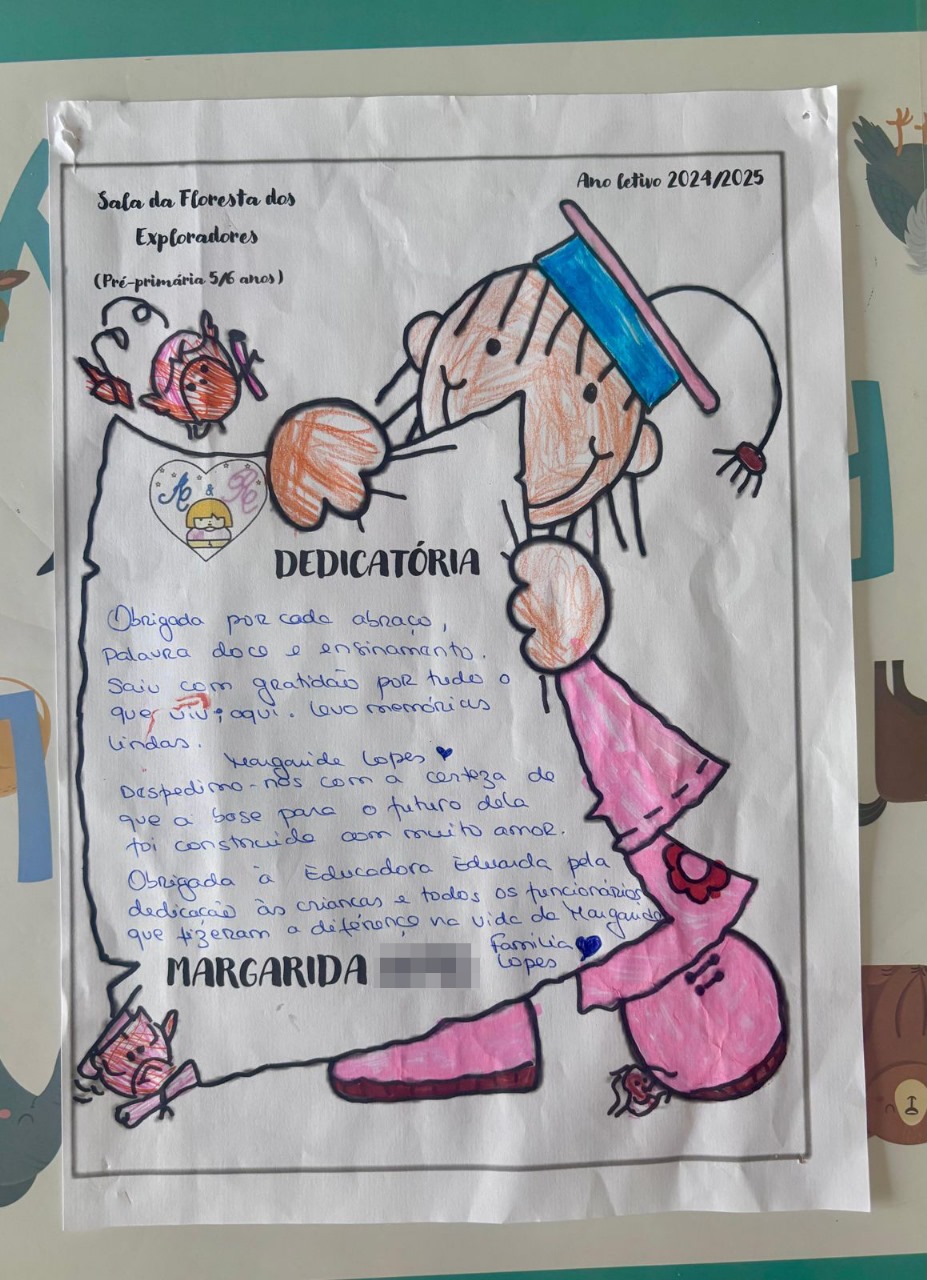 Sala da Floresta dos
Exploradores
(Pré-primária 5/6 anos)
Ano letivo 2024/2025
A & R
DEDICATÓRIA
Obrigada por cada abraço,
palavra doce e ensinamento.
Saiu com gratidão por tudo o
que vivi aqui. Levo memórias
lindas.
Margarida Lopes
Despedimo-nos com a certeza de
que a base para o futuro dela
foi construida com muito amor.
Obrigada à Educadora Eduarda pela
dedicação às crianças e todos os funcionários
que fizeram a diferença na vida da Margarida
Família
Lopes
MARGARIDA